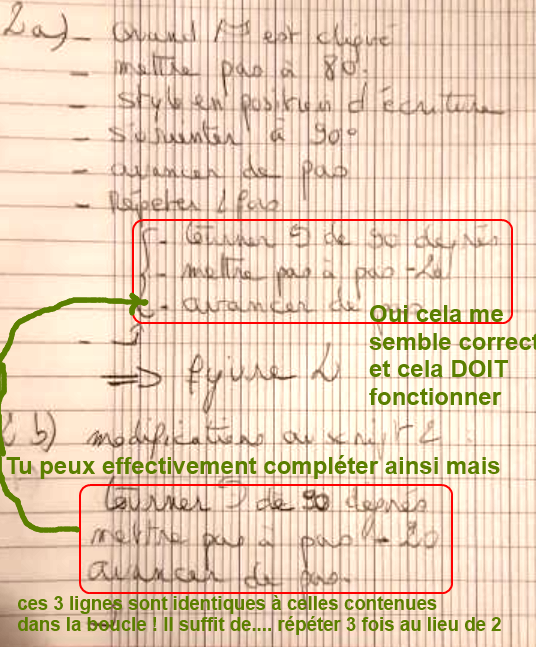 2a) - Quand est cliqué
- mettre pas à 80.
- stylo en position d'écriture
- s'orienter à 90°
- avancer de pas
- Répéter 2 fois
- tourner de 90 degrés
- mettre pas à pas -20
- avancer de pas
Oui cela me
semble correct
et cela DOIT
fonctionner
=> figure 2
2 b) modification au script 2
Tu peux effectivement compléter ainsi mais
tourner de 90 degrés
mettre pas à pas - 20
avancer de pas.
ces 3 lignes sont identiques à celles contenues
dans la boucle ! Il suffit de.... répéter 3 fois au lieu de 2